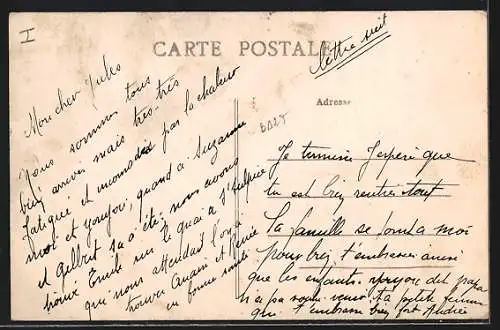 I
CARTE POSTALE
lettre suit
Adresse
Mon cher Jules
Nous sommes tous
bien arrivés mais très-très
fatigué et incomodés par la chaleur
moi et youyou, quand a Suzanne
et Gilbert sa a été. nous avons
trouvé Emile sur le quai a
que nous attendait
trouvé et
en bonne santé
Je termine J'espère que
tu est bien rentrée tout
la famille se joind a moi
pour bien t'embrasser ainsi
que les enfants. youyou dit papa
Ta petite femme
que t'embrasse bien fort Andrée